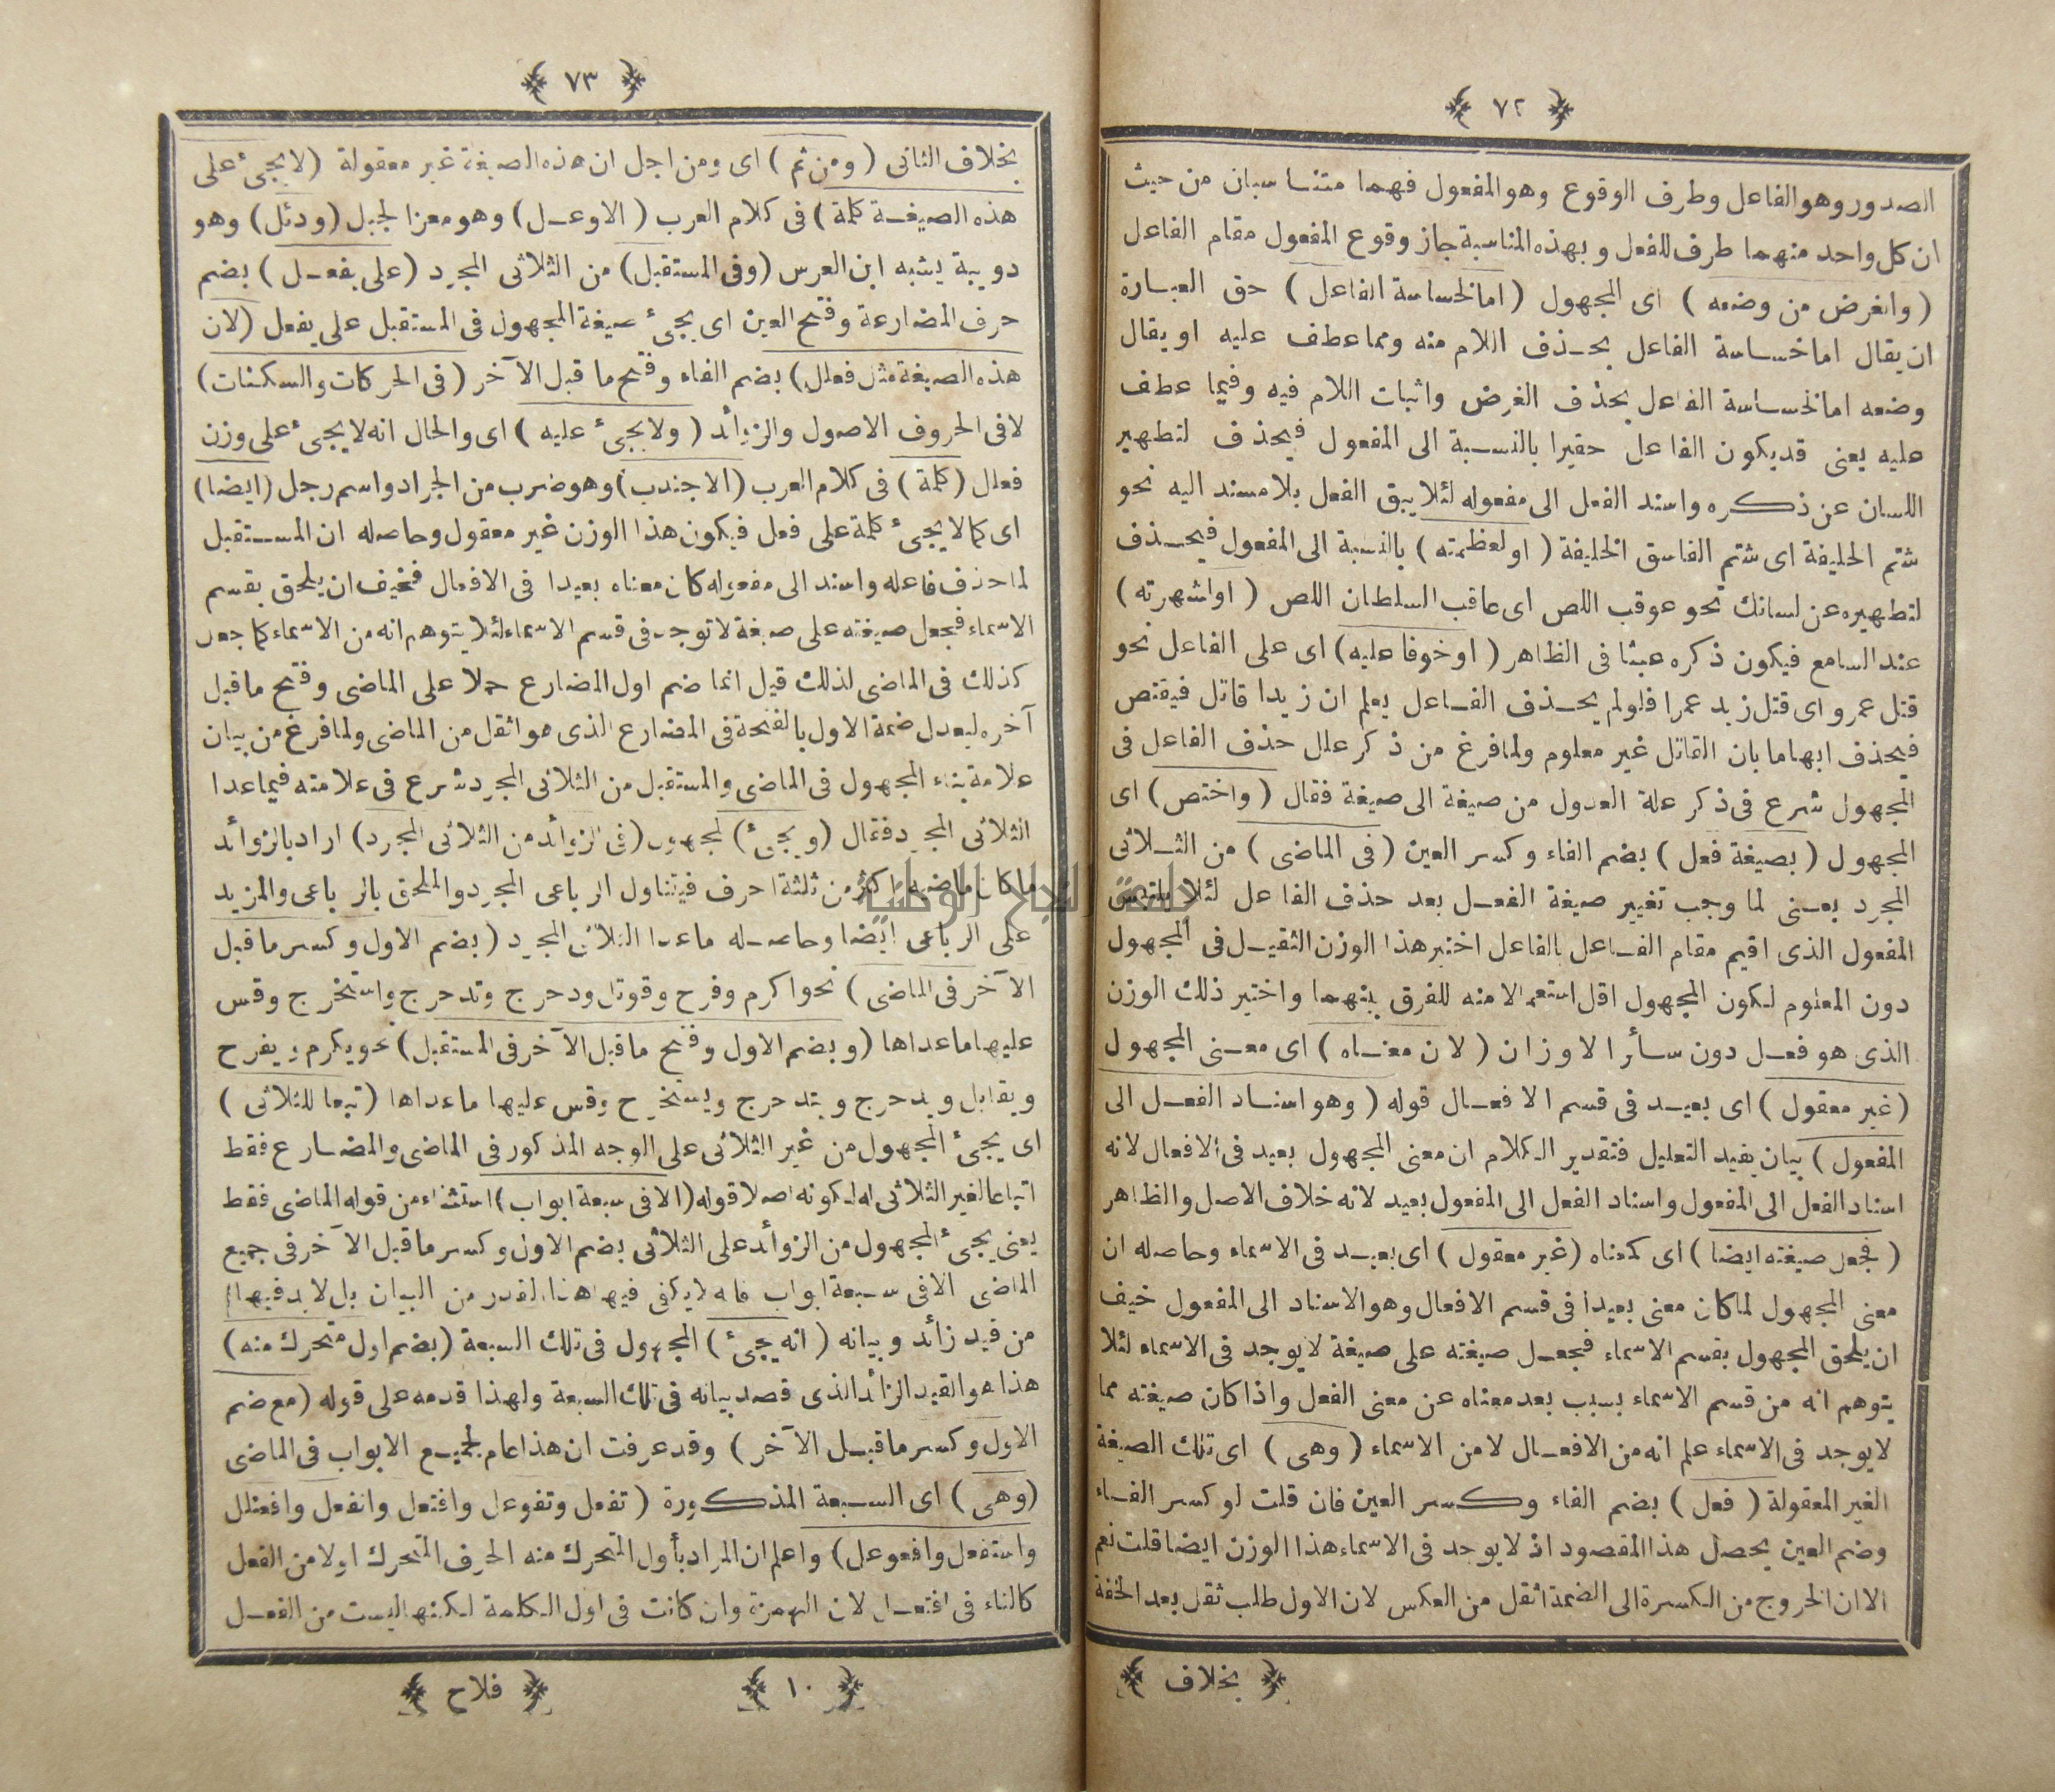 ﴿ ٧٢ ﴾
الصدور وهو الفاعل وطرف الوقوع وهو المفعول فهما متناسبان من حيث
ان كل واحد منهما طرف للفعل وبهذه المناسبة جاز وقوع المفعول مقام الفاعل
(والغرض من وضعه) اى المجهول (اما لخساسة الفاعل) حق العبارة
ان يقال اما خساسة الفاعل بحذف اللام منه ومما عطف عليه او يقال
وضعه اما لخساسة الفاعل بحذف الغرض واثبات اللام فيه وفيما عطف
عليه يعنى قد يكون الفاعل حقيرا بالنسبة الى المفعول فيحذف لتطهير
اللسان عن ذكره واسند الفعل الى مفعوله لئلا يبق الفعل بلا مسند اليه نحو
شتم الخليفة اى شتم الفاسق الخليفة (او لعظمته) بالنسبة الى المفعول فيحذف
لتطهيره عن لسانك نحو عوقب اللص اى عاقب السلطان اللص (او اشهرته)
عند السامع فيكون ذكره عبثا فى الظاهر (او خوفا عليه) اى على الفاعل نحو
قتل عمرو اى قتل زيد عمرا فلو لم يحذف الفاعل يعلم ان زيدا قاتل فيقتص
فيحذف ابهاما بان القاتل غير معلوم ولما فرغ من ذكر علل حذف الفاعل فى
المجهول شرع فى ذكر علة العدول من صيغة الى صيغة فقال (واختص) اى
المجهول (بصيغة فعل) بضم الفاء وكسر العين (فى الماضى) من الثلاثى
المجرد يعنى لما وجب تغيير صيغة الفعل بعد حذف الفاعل لئلا يلتبس
المفعول الذى اقيم مقام الفاعل بالفاعل اختير هذا الوزن الثقيل فى المجهول
دون المعلوم لكون المجهول اقل استعمالا منه للفرق بينهما واختير ذلك الوزن
الذى هو فعل دون سائر الاوزان (لان معناه) اى معنى المجهول
(غير معقول) اى بعيد فى قسم الافعال قوله (وهو اسناد الفعل الى
المفعول) بيان يفيد التعليل فتقدير الكلام ان معنى المجهول بعيد فى الافعال لانه
اسناد الفعل الى المفعول واسناد الفعل الى المفعول بعيد لانه خلاف الاصل والظاهر
(فجعل صيغته ايضا) اى كمعناه (غير معقول) اى بعيد فى الاسماء وحاصله ان
معنى المجهول لما كان معنى بعيدا فى قسم الافعال وهو الاسناد الى المفعول خيف
ان يلحق المجهول بقسم الاسماء فجعل صيغته على صيغة لا يوجد فى الاسماء لئلا
يتوهم انه من قسم الاسماء بسبب بعد معناه عن معنى الفعل واذا كان صيغته مما
لا يوجد فى الاسماء علم انه من الافعال لا من الاسماء (وهى) اى تلك الصيغة
الغير المعقولة (فعل) بضم الفاء وكسر العين فان قلت لو كسر الفاء
وضم العين يحصل هذا المقصود اذ لا يوجد فى الاسماء هذا الوزن ايضا قلت نعم
الا ان الخروج من الكسرة الى الضمة اثقل من العكس لان الاول طلب ثقل بعد الخفة
﴿ بخلاف ﴾
﴿ ٧٣ ﴾
بخلاف الثانى (ومن ثم) اى ومن اجل ان هذه الصيغة غير معقولة (لا يجئ على
هذه الصيغة كلمة) فى كلام العرب (الا وعل) وهو معز الجبل (ودئل) وهو
دويبة يشبه ابن العرس (وفى المستقبل) من الثلاثى المجرد (على يفعل) بضم
حرف المضارعة وفتح العين اى يجئ صيغة المجهول فى المستقبل على يفعل (لان
هذه الصيغة مثل فعلل) بضم الفاء وفتح ما قبل الآخر (فى الحركات والسكنات)
لا فى الحروف الاصول والزوائد (ولا يجئ عليه) اى والحال انه لا يجئ على وزن
فعلل (كلمة) فى كلام العرب (الا جندب) وهو ضرب من الجراد واسم رجل (ايضا)
اى كما لا يجئ كلمة على فعل فيكون هذا الوزن غير معقول وحاصله ان المستقبل
لما حذف فاعله واسند الى مفعوله كان معناه بعيدا فى الافعال فخيف ان يلحق بقسم
الاسماء فجعل صيغته على صيغة لا توجد فى قسم الاسماء لئلا يتوهم انه من الاسماء كما جعل
كذلك فى الماضى لذلك قيل انما ضم اول المضارع حملا على الماضى وفتح ما قبل
آخره ليعدل ضمة الاول بالفتحة فى المضارع الذى هو اثقل من الماضى ولما فرغ من بيان
علامة بناء المجهول فى الماضى والمستقبل من الثلاثى المجرد شرع فى علامته فيما عدا
الثلاثى المجرد فقال (ويجئ) المجهول (فى الزوائد من الثلاثى المجرد) اراد بالزوائد
ما كان ماضيه اكثر من ثلثة احرف فيتناول الرباعى المجرد والملحق بالرباعى والمزيد
على الرباعى ايضا وحاصله ما عدا الثلاثى المجرد (بضم الاول وكسر ما قبل
الآخر فى الماضى) نحو اكرم وفرح وقوتل ودحرج وتدحرج واستخرج وقس
عليها ما عداها (وبضم الاول وفتح ما قبل الآخر فى المستقبل) نحو يكرم ويفرح
ويقابل ويدحرج ويتدحرج ويستخرج وقس عليها ما عداها (تبعا للثلاثى)
اى يجئ المجهول من غير الثلاثى على الوجه المذكور فى الماضى والمضارع فقط
اتباعا لغير الثلاثى له لكونه اصلا قوله (الا فى سبعة ابواب) استثناء من قوله الماضى فقط
يعنى يجئ المجهول من الزوائد على الثلاثى بضم الاول وكسر ما قبل الآخر فى جميع
الماضى الا فى سبعة ابواب فانه لا يكفى فيها هذا القدر من البيان بل لابد فيها
من قيد زائد وبيانه (انه يجئ) المجهول فى تلك السبعة (بضم اول متحرك منه)
هذا هو القيد الزائد الذى قصد بيانه فى تلك السبعة ولهذا قدمه على قوله (مع ضم
الاول وكسر ما قبل الآخر) وقد عرفت ان هذا عام لجميع الابواب فى الماضى
(وهى) اى السبعة المذكورة (تفعل وتفوعل وافتعل وانفعل وافعنلل
واستفعل وافعوعل) واعلم ان المراد بأول المتحرك منه الحرف المتحرك اولا من الفعل
كالتاء فى افتعل لان الهمزة وان كانت فى اول الكلمة لكنها ليست من الفعل
﴿ ١٠ ﴾
﴿ فلاح ﴾
جامعة النجاح الوطنية